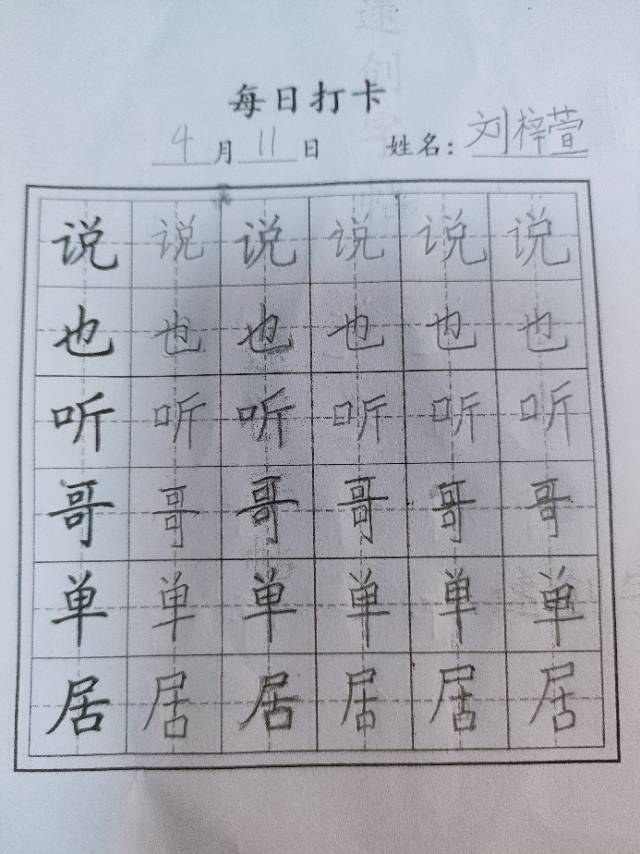 每日打卡
4月11日 姓名：刘梓萱
说说说说说说
也也也也也也
听听听听听听
哥哥哥哥哥哥
单单单单单单
居居居居居居